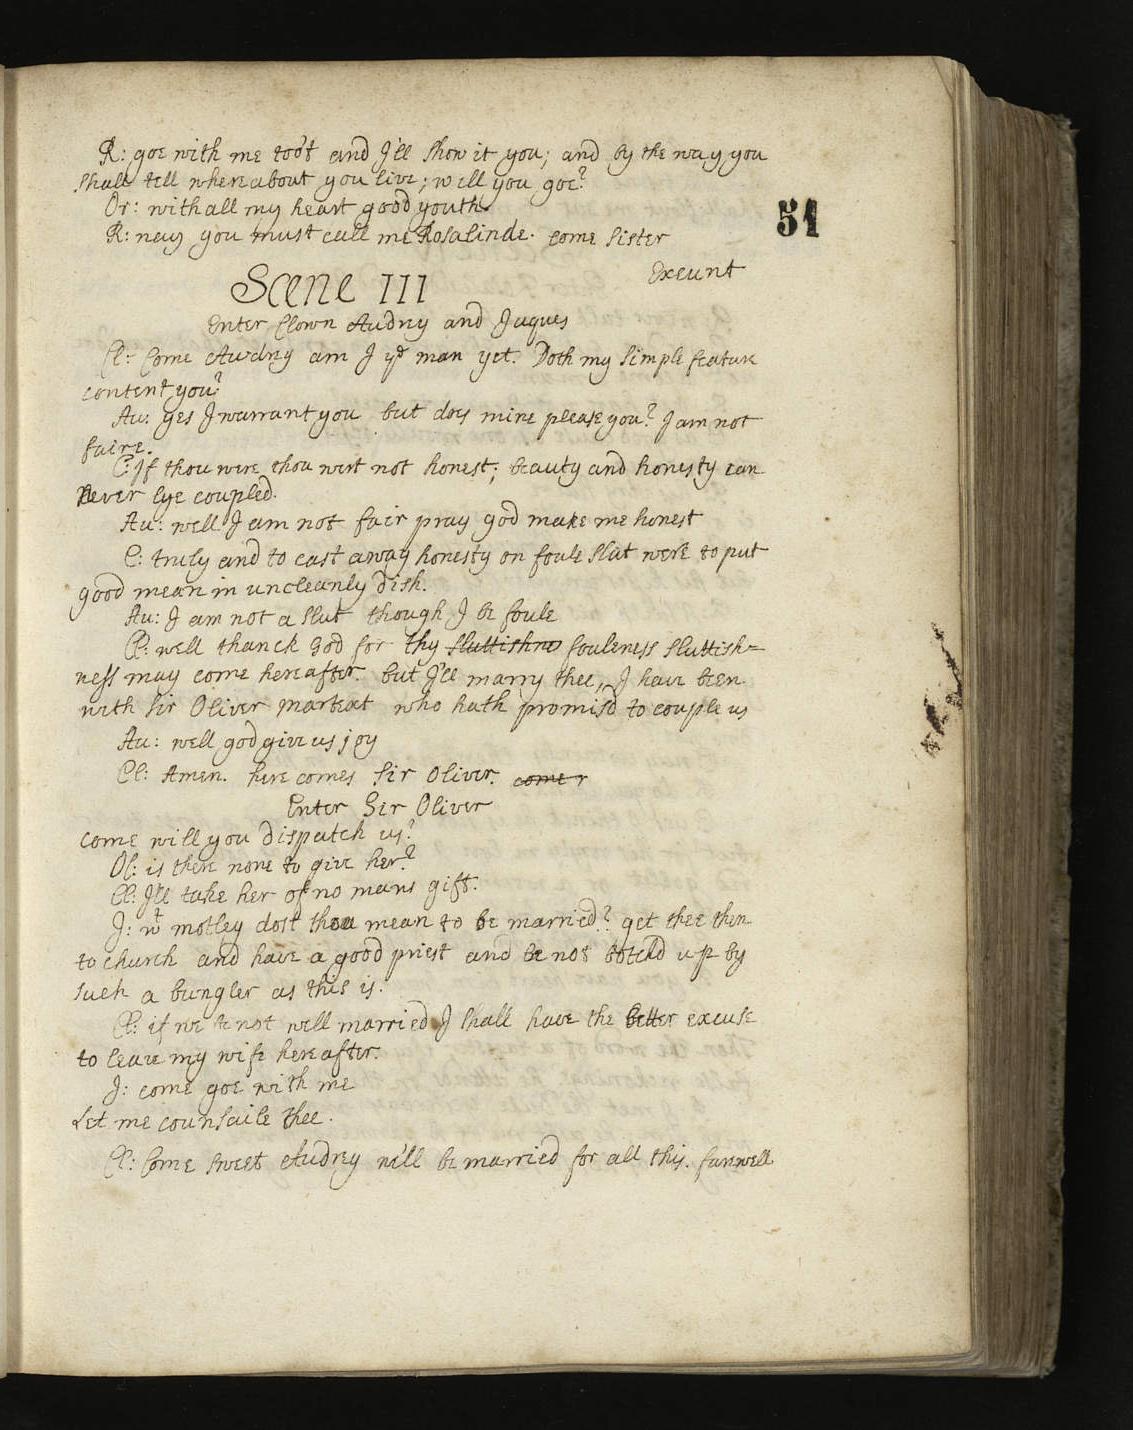 R: goe with me too't and I'll show it you; and by the way you
shall tell whereabout you live; will you goe?
Or: with all my heart good youth.
51
R: nay you must call me Rosalinde. come sister
Exeunt
Scene III
Enter Clown Audry and Jaques
Cl: Come Audry am I yr man yet. Doth my simple feature
content you?
Au: yes I warrant you but does mine please you? I am not
faire.
C: If thou were thou wert not honest; beauty and honesty can
never lye coupled.
Au: well I am not fair pray god make me honest
C: truly and to cast away honesty on foule slut were to put
good mean in uncleanly dish.
Au: I am not a slut though I be foule
Cl: well thanck god for thy sluttishnes fouleness sluttish=
ness may come hereafter. but I'll marry thee, I have been
with Sir Oliver martext who hath promis'd to couple us
Au: well god give us joy
Cl: Amen. here comes Sir Oliver. come r
Enter Sir Oliver
come will you dispatch us?
Ol: is there none to give her?
Cl: I'll take her of no mans gift.
J: wt motley dost thou mean to be married? get thee then
to church and have a good priest and be not botch'd up by
such a bungler as this is.
Cl: if we be not well married I shall have the better excuse
to leave my wife hereafter.
J: come goe with me
Let me counsaile thee.
Cl: Come sweet Audry we'll be married for all this. farwell